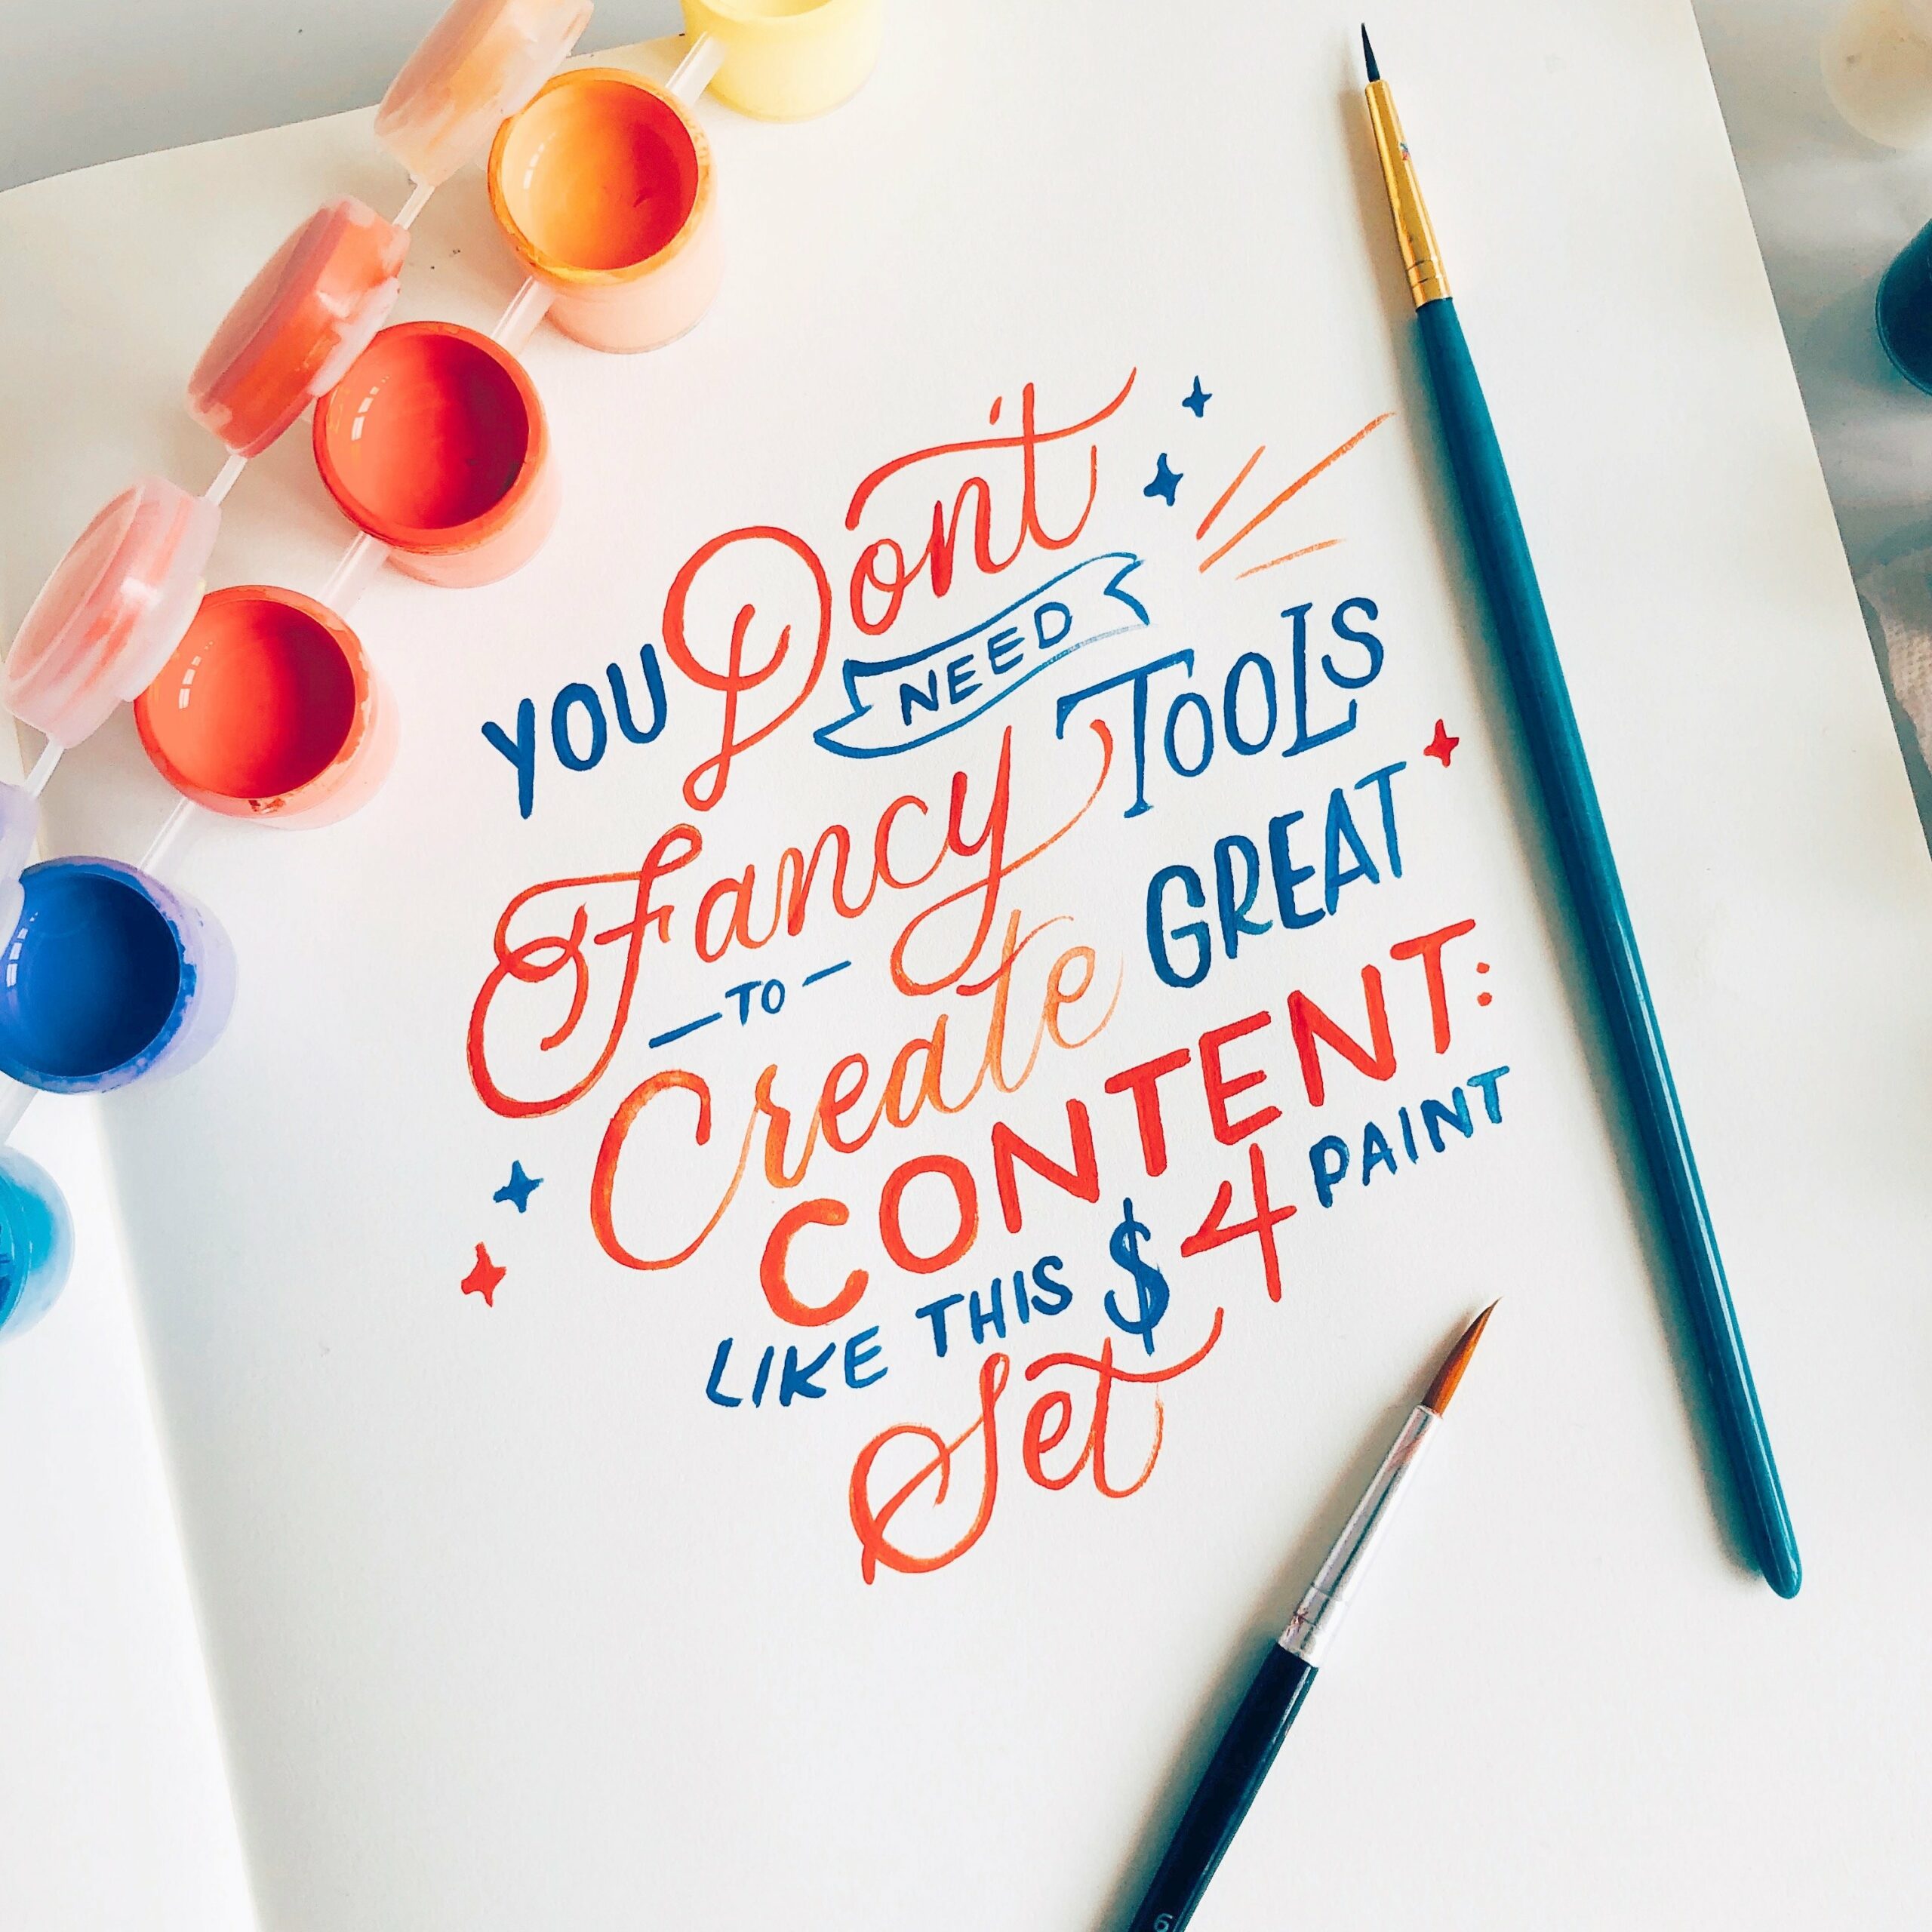 YOU Don't
NEED
Fancy TOOLS
—TO—
Create GREAT
CONTENT:
LIKE THIS $4 PAINT
Set
6